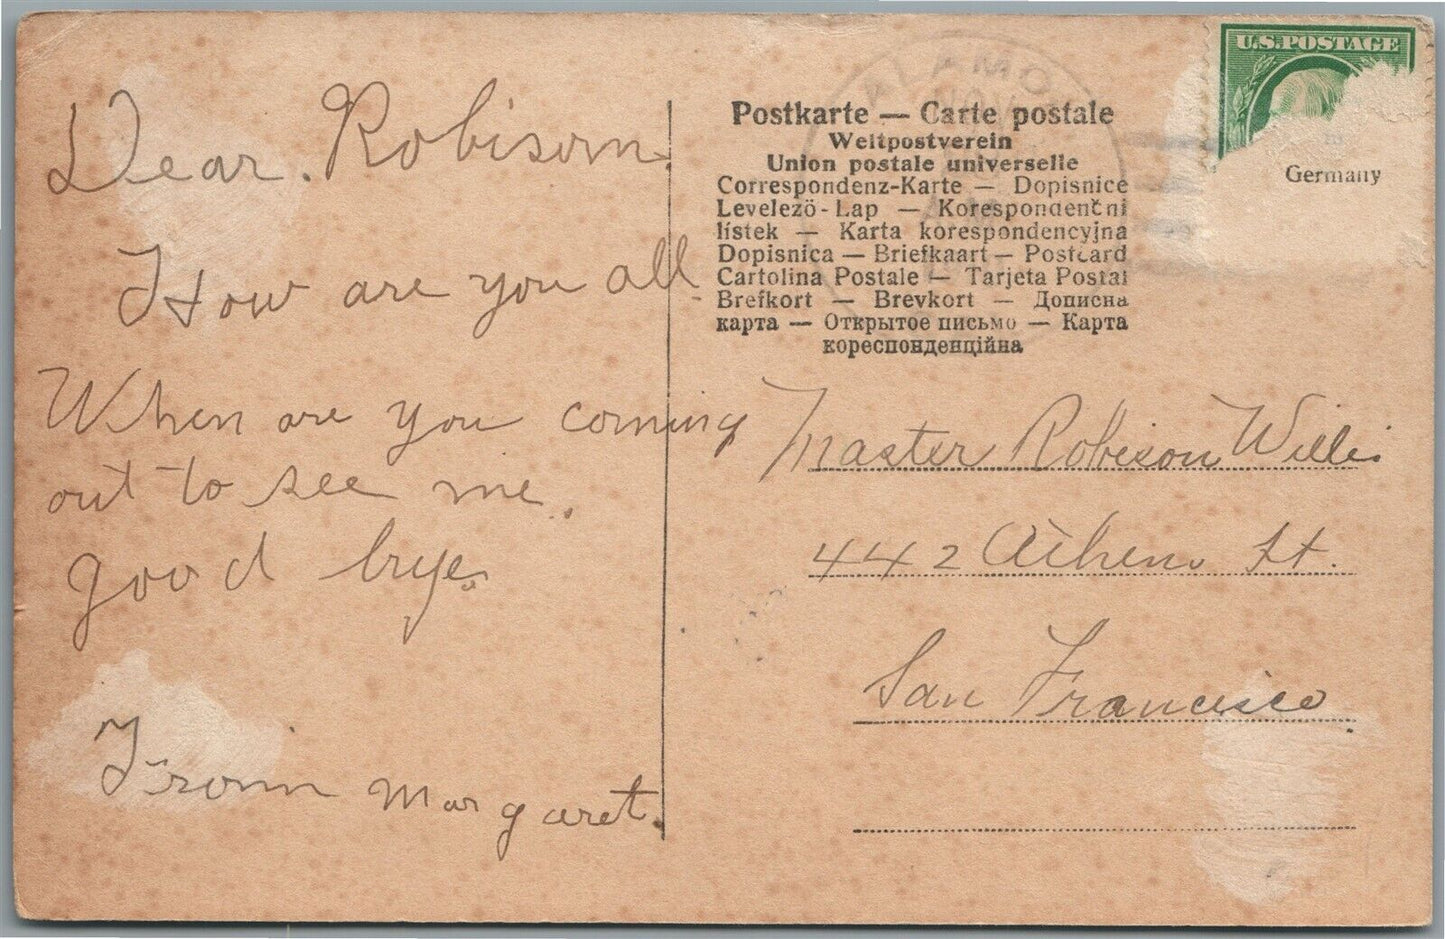 Dear. Robison.
How are you all
When are you coming
out to see me.
good bye.
From Margaret.
ALAMO
NOV
U.S. POSTAGE
Germany
Postkarte — Carte postale
Weltpostverein
Union postale universelle
Correspondenz-Karte — Dopisnice
Levelezö-Lap — Korespondenční
lístek — Karta korespondencyjna
Dopisnica — Briefkaart — Postcard
Cartolina Postale — Tarjeta Postal
Brefkort — Brevkort — Дописна
карта — Открытое письмо — Карта
кореспонденційна
Master Robison Willis
442 Athens St.
San Francisco.